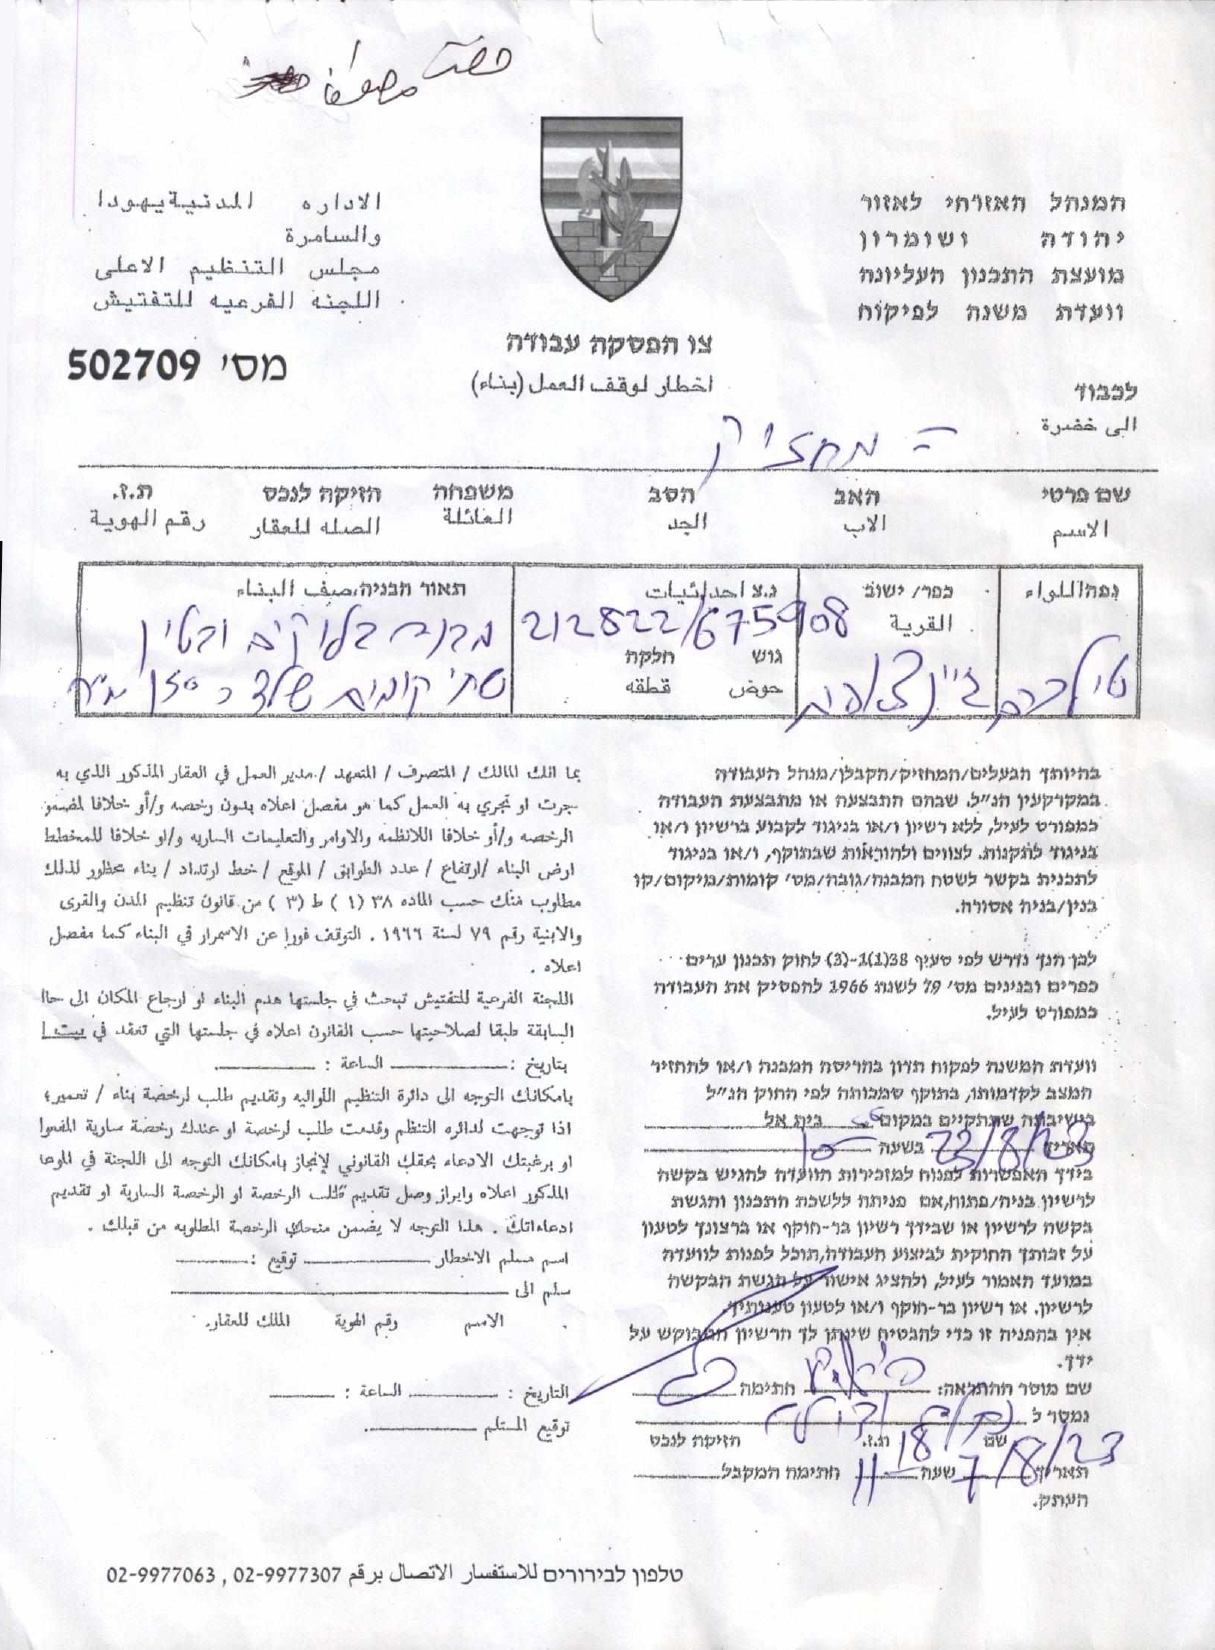 המנהל האזרחי לאזור
יהודה ושומרון
מועצת התכנון העליונה
וועדת משנה לפיקוח
الاداره المدنية يهودا
والسامرة
مجلس التنظيم الاعلى
اللجنه الفرعيه للتفتيش
צו הפסקה עבודה
اخطار لوقف العمل (بناء)
מס' 502709
לכבוד
الى حضرة
המחזיק
שם פרטי האב הסב משפחה הזיקה לנכס ת.ז.
الاسم الاب الجد العائلة الصله للعقار رقم الهوية
נפה اللواء
כפר/ ישוב
القرية
נ.צ احداثيات
212822/675908
גוש חלקה
حوض قطقه
תאור הבניה, صيف البناء
מבנה בלוקים ובטון
שתי קומות שלד כ
בהיותך הבעלים/המחזיק/הקבלן/מנהל העבודה
במקרקעין הנ"ל. שבהם התבצעה או מתבצעת העבודה
כמפורט לעיל, ללא רשיון ו/או בניגוד לקבוע ברשיון ו/או
בניגוד לתקנות. לצווים ולהוראות שבתוקף, ו/או בניגוד
לתכנית בקשר לשטח המבנה/גובה/מס' קומות/מיקום/קו
בנין/בניה אסורה.
לכן הנך נדרש לפי סעיף 38(1)-(3) לחוק תכנון ערים
כפרים ובנינים מס' 79 לשנת 1966 להפסיק את העבודה
כמפורט לעיל.
וועדת המשנה לפקוח תדון בהריסה המבנה ו/או להחזיר
המצב לקדמותו, בתוקף סמכותה לפי החוק הנ"ל
בישיבתה שתתקיים במקום בית אל
תאריך 23/8/23 בשעה 10
בידך האפשרות לפנות למזכירות הוועדה להגיש בקשה
לרשיון בניה/פתוח, אם פניתה ללשכת התכנון והגשת
בקשה לרשיון או שבידך רשיון בר-תוקף או ברצונך לטעון
על זכותך החוקית לביצוע העבודה, תוכל לפנות לוועדה
במועד האמור לעיל, ולהציג אישור על הגשת הבקשה
לרשיון. או רשיון בר-תוקף ו/או לטעון טענותיך.
אין בהפניה זו כדי להבטיח שינתן לך הרשיון המבוקש על
ידך.
שם מוסר ההתראה: חתימה
נמסר ל
שם ת.ז. הזיקה לנכס
תאריך 7/8/23 שעה 11 חתימה המקבל
העתק.
بما انك المالك / المتصرف / المتعهد / مدير العمل في العقار المذكور الذي به
جرت او تجري به العمل كما هو مفصل اعلاه بدون رخصه و/أو خلافا لمضمو
الرخصه و/أو خلافا اللانظمه والاوامر والتعليمات الساريه و/او خلافا للمخطط
ارض البناء /ارتفاع / عدد الطوابق / الموقع / خط ارتداد / بناء محظور لذلك
مطلوب منك حسب الماده ٣٨ (١ ) ط (٣ ) من قانون تنظيم المدن والقرى
والابنية رقم ٧٩ لسنة ١٩٦٦ . التوقف فورا عن الاسمرار في البناء كما مفصل
اعلاه .
اللجنة الفرعية للتفتيش تبحث في جلستها هدم البناء او ارجاع المكان الى حالا
السابقة طبقا لصلاحيتها حسب القانون اعلاه في جلستها التي تعقد في بيت ا
بتاريخ : الساعة :
بامكانك التوجه الى دائرة التنظيم اللواليه وتقديم طلب لرخصة بناء / تعمير؛
اذا توجهت لدائره التنظم وقدمت طلب لرخصة او عندك رخصة سارية المفعوا
او برغبتك الادعاء بحقك القانوني لإنجاز بامكانك التوجه الى اللجنة في الموعا
المذكور اعلاه وابراز وصل تقديم طلب الرخصة او الرخصة السارية او تقديم
ادعاءاتك . هذا التوجه لا يضمن منحكي الرخصة المطلوبه من قبلك .
اسم مسلم الاخطار توقيع :
سلم الى
الاسم رقم الهوية الملك للعقار.
التاريخ : الساعة :
توقيع المستلم
טלפון לבירורים للاستفسار الاتصال برقم 02-9977307 , 02-9977063